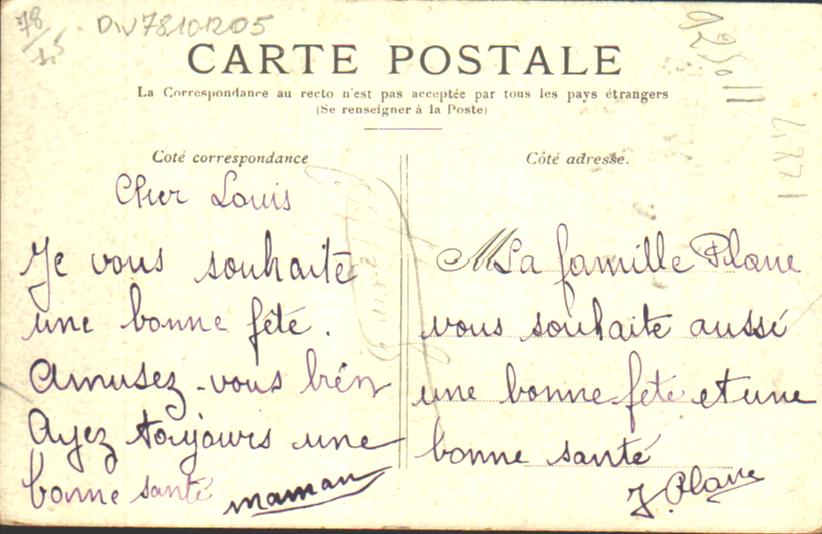 78
1,5
DIV78101205
CARTE POSTALE
La Correspondance au recto n'est pas acceptée par tous les pays étrangers
(Se renseigner à la Poste)
Coté correspondance
Cher Louis
Je vous souhaite
une bonne fête.
Amusez-vous bién
Ayez toujours une
bonne santé
maman
Côté adresse.
M La famille Plane
vous souhaite aussé
une bonne fête et une
bonne santé
J. Plane